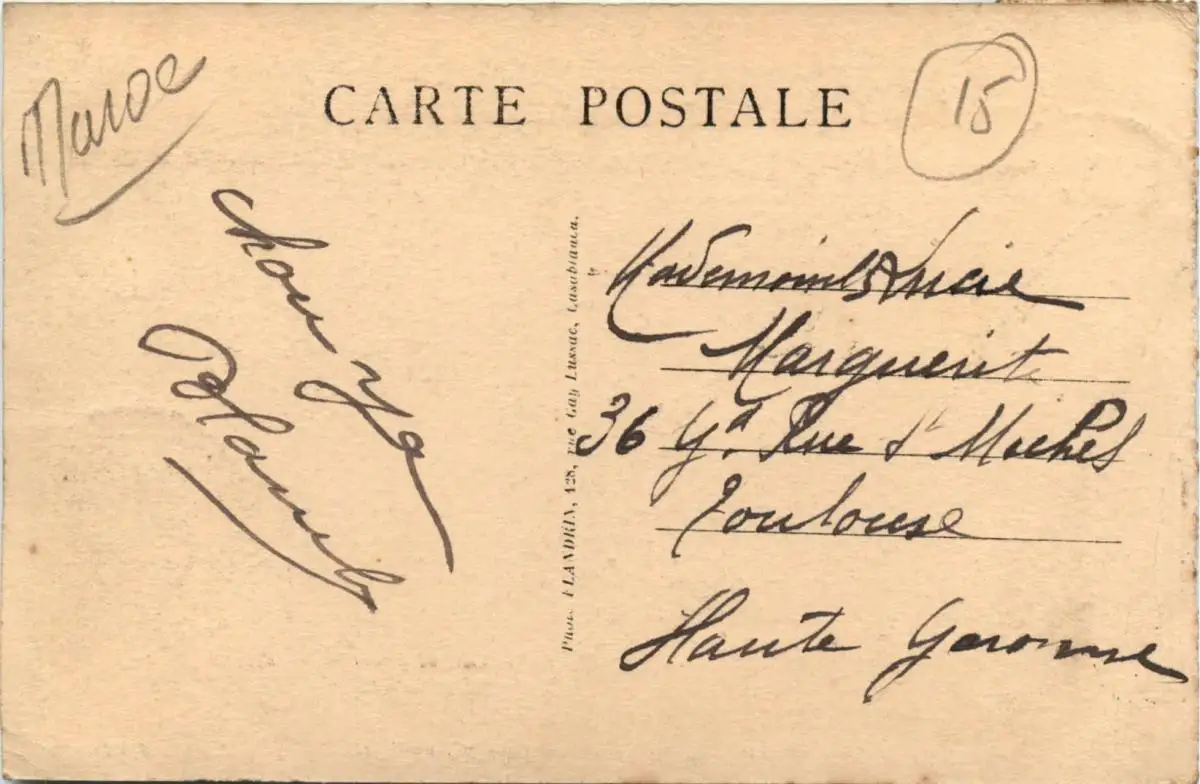 Maroc
CARTE POSTALE
15
Mademoiselle Lucie
Marguerite
36 Gde Rue St Michel
Toulouse
Haute Garonne
Photo FLANDRIN, 128, rue Gay Lussac, Casablanca.